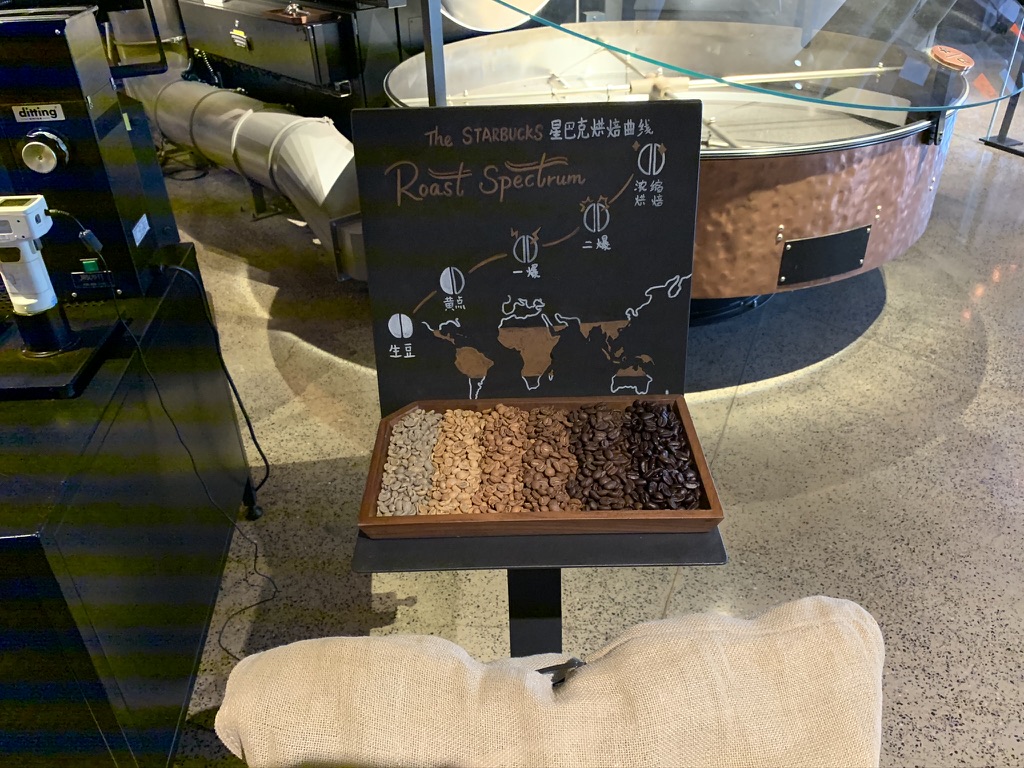 ditting
The STARBUCKS 星巴克烘焙曲线
Roast Spectrum
浓缩
烘焙
二爆
一爆
黄点
生豆